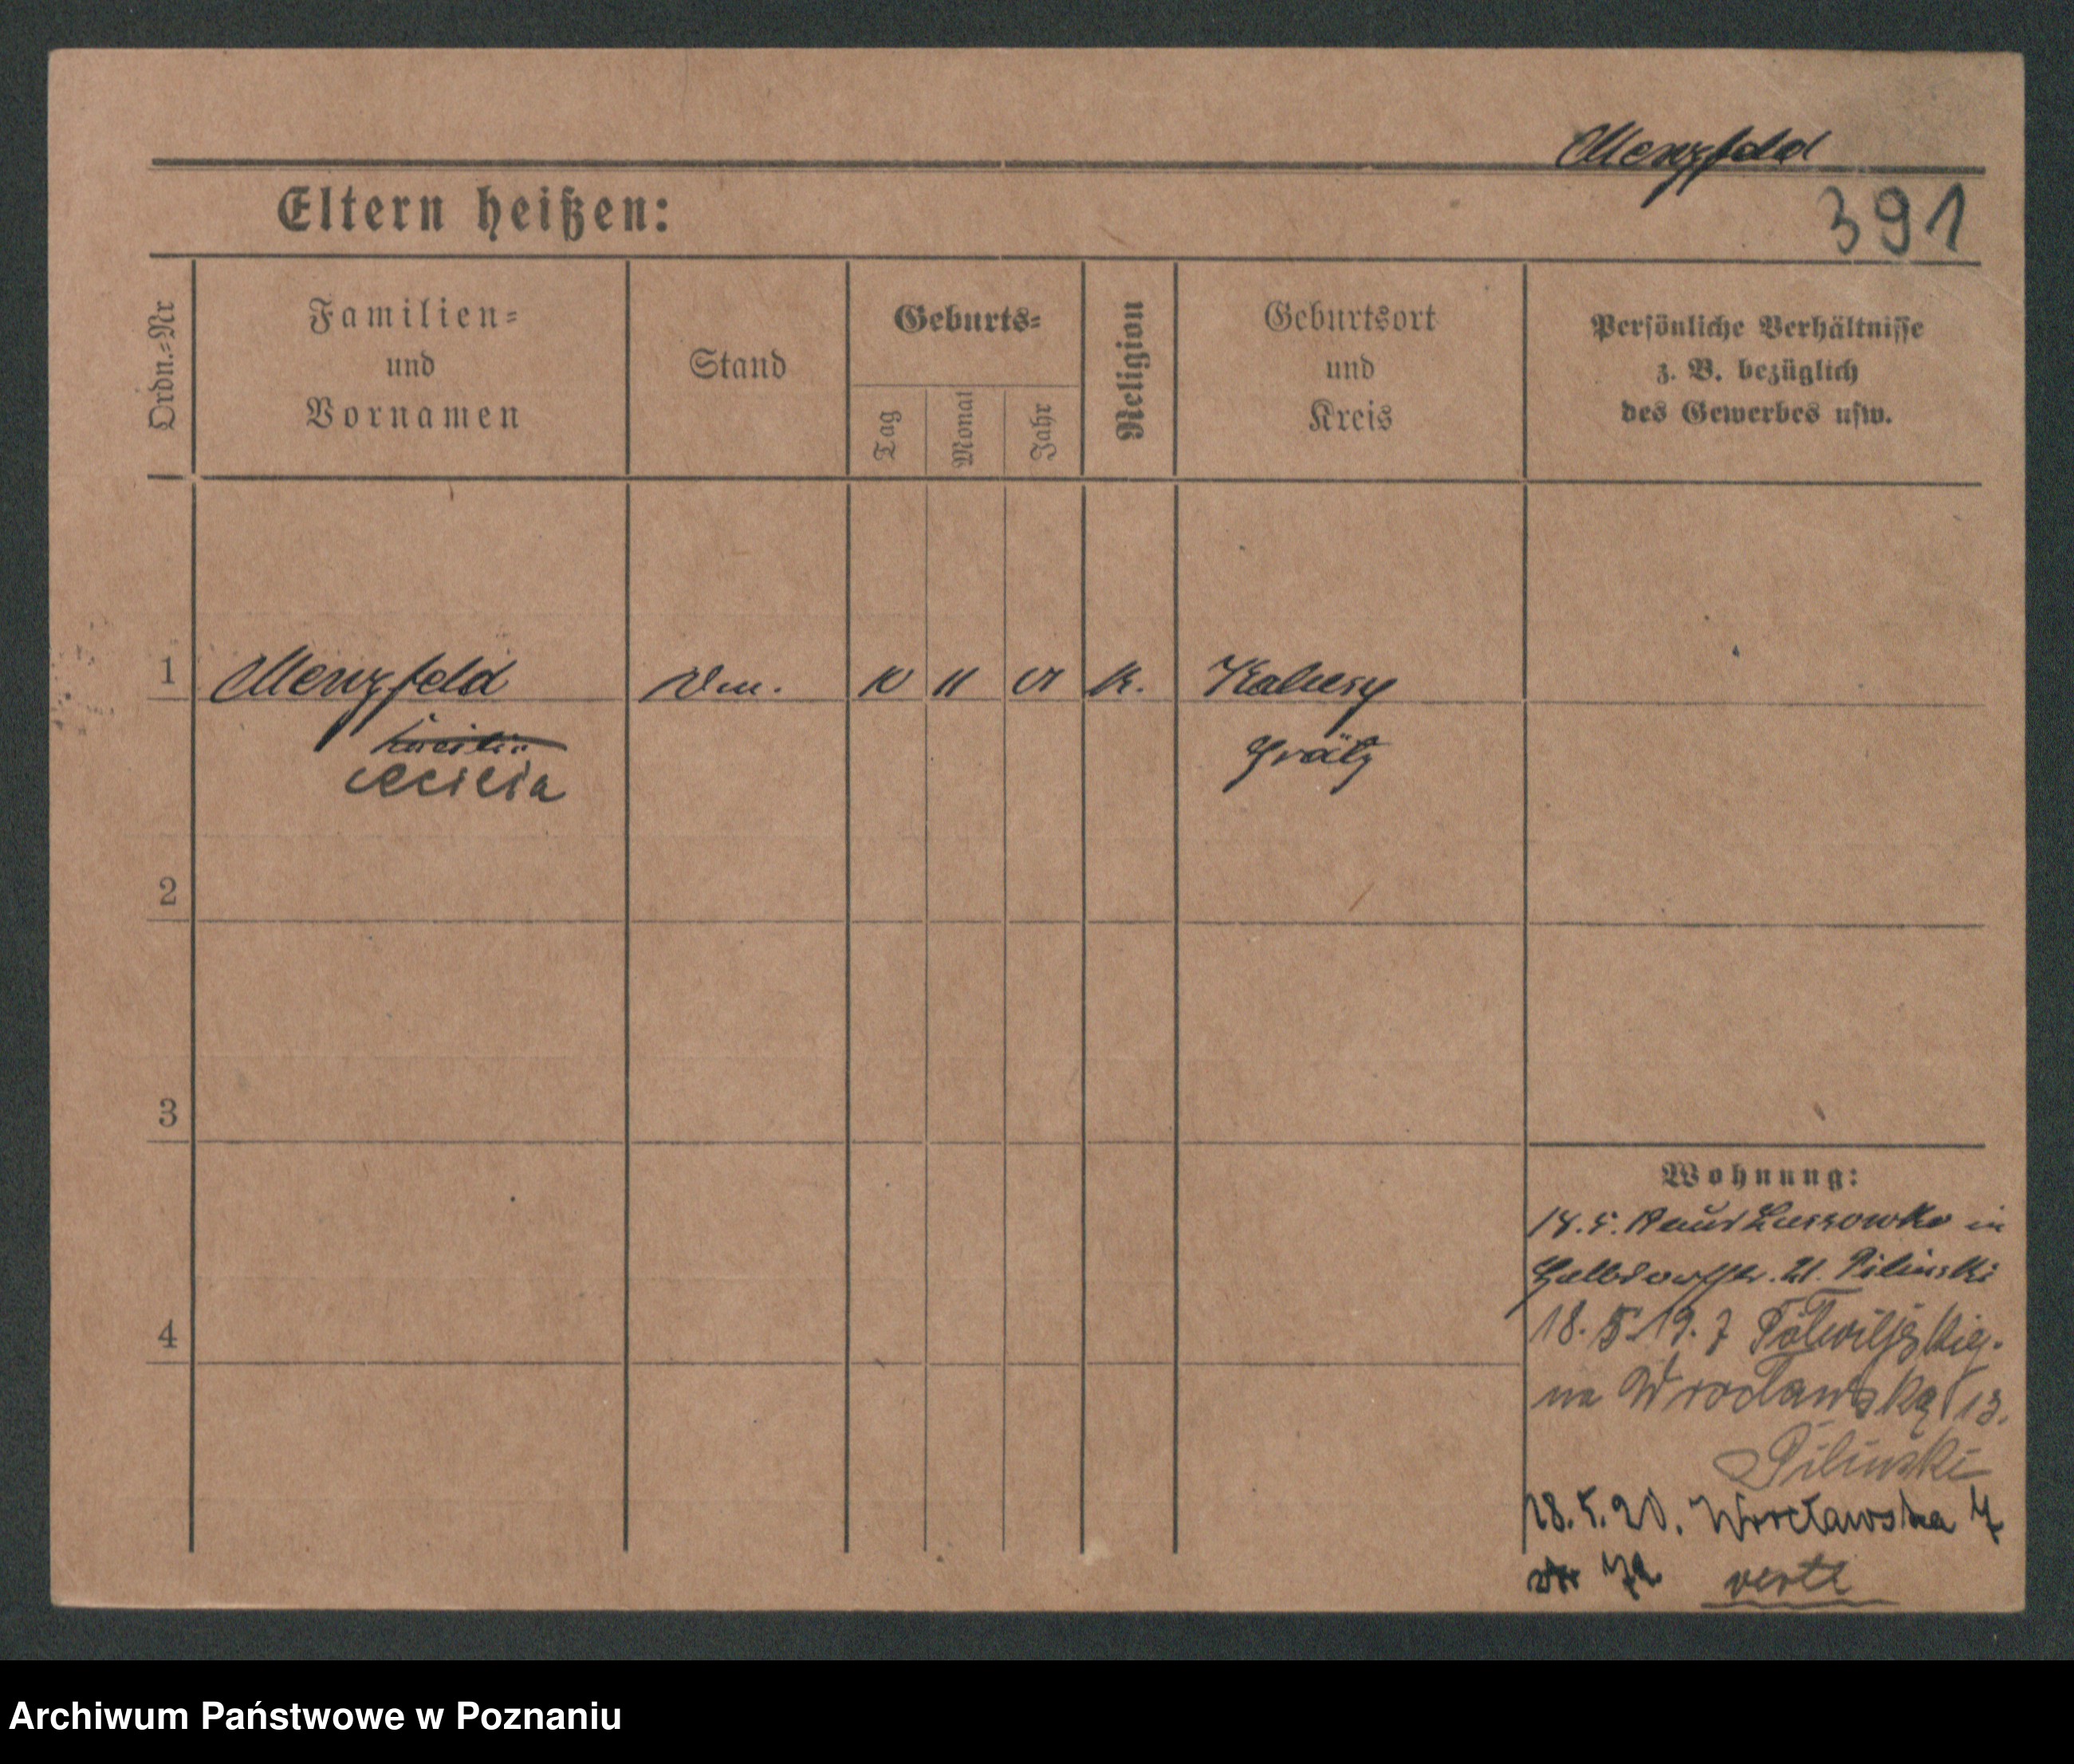 Menzfeld
Eltern heißen:
391
Ordn.-Nr
Familien-
und
Vornamen
Stand
Geburts-
Tag
Monat
Jahr
Religion
Geburtsort
und
Kreis
Persönliche Verhältnisse
z. B. bezüglich
des Gewerbes usw.
1 Menzfeld 10 11 01 k.
Grätz
Cecilia
2
3
Wohnung:
14.5.19 aus Lussowko in
21. Pilinski
4
18.5.19. z
na Wrocławską 13.
Pilinski
28.5.20. Wrocławska 7
verte
Archiwum Państwowe w Poznaniu